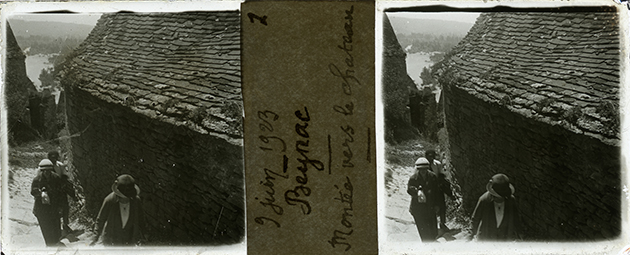 2
9 juin 1923
Beynac
Montée vers le chateau